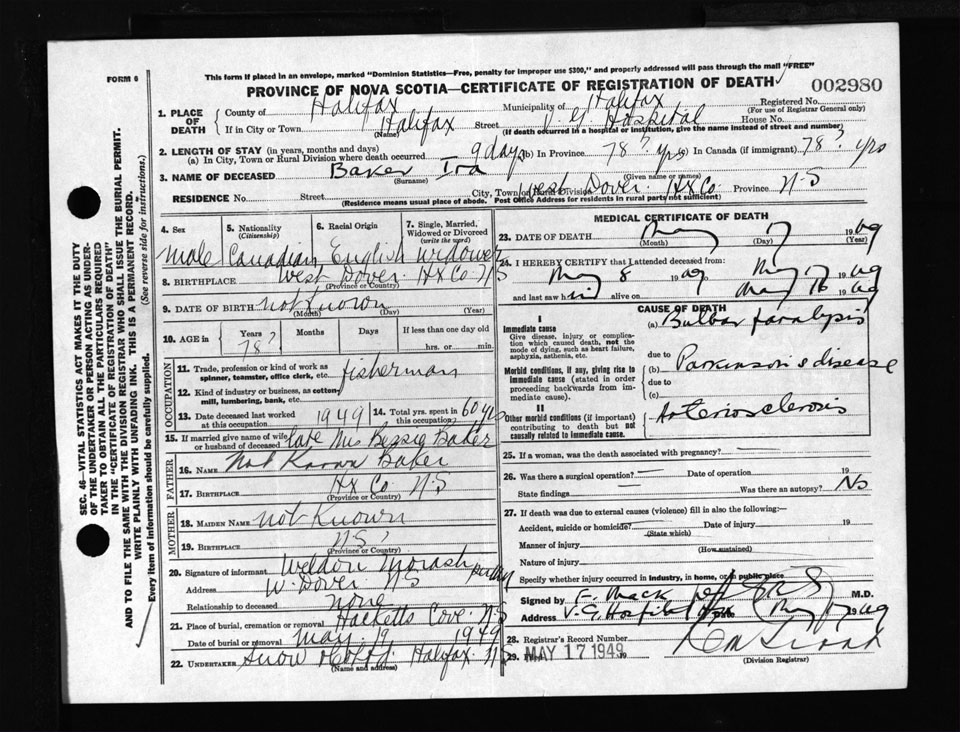 FORM 6
This form if placed in an envelope, marked "Dominion Statistics—Free, penalty for improper use $300," and properly addressed will pass through the mail "FREE"
PROVINCE OF NOVA SCOTIA—CERTIFICATE OF REGISTRATION OF DEATH
002980
1. PLACE OF DEATH
County of Halifax Municipality of Halifax Registered No.
(For use of Registrar General only)
If in City or Town Halifax Street V. G. Hospital House No.
(Name) (If death occurred in a hospital or institution, give the name instead of street and number)
2. LENGTH OF STAY (in years, months and days)
(a) In City, Town or Rural Division where death occurred 9 days (b) In Province 78? yrs (c) In Canada (if immigrant) 78? yrs
3. NAME OF DECEASED Baker Ira
(Surname) (Given name or names)
RESIDENCE No. Street City, Town or Rural Division West Dover Hx Co. Province N.S
(Residence means usual place of abode. Post Office Address for residents in rural parts not sufficient)
4. Sex
5. Nationality (Citizenship)
6. Racial Origin
7. Single, Married, Widowed or Divorced (write the word)
Male Canadian English Widower
8. BIRTHPLACE West Dover Hx Co. NS
(Province or Country)
9. DATE OF BIRTH not Known
(Month) (Day) (Year)
10. AGE in Years Months Days If less than one day old
78? hrs. or min.
OCCUPATION
11. Trade, profession or kind of work as spinner, teamster, office clerk, etc. fisherman
12. Kind of industry or business, as cotton-mill, lumbering, bank, etc.
13. Date deceased last worked at this occupation 1949
14. Total yrs. spent in this occupation 60 yrs
15. If married give name of wife or husband of deceased late Mrs Bessie Baker
FATHER
16. NAME Not Known Baker
17. BIRTHPLACE Hx Co. N.S
(Province or Country)
MOTHER
18. MAIDEN NAME not Known
19. BIRTHPLACE N.S?
(Province or Country)
20. Signature of informant Weldon Morash
Address W. Dover NS
Relationship to deceased None
21. Place of burial, cremation or removal Hacketts Cove N.S
Date of burial or removal May 19 1949
22. UNDERTAKER Snow Halifax NS
(Name and address)
MEDICAL CERTIFICATE OF DEATH
23. DATE OF DEATH May 17 1949
(Month) (Day) (Year)
24. I HEREBY CERTIFY that I attended deceased from:
May 8 1949 May 17 1949
and last saw him alive on May 16 1949
CAUSE OF DEATH
I
Immediate cause
Give disease, injury or complication which caused death, not the mode of dying, such as heart failure, asphyxia, asthenia, etc.
(a) Bulbar paralysis
due to
Morbid conditions, if any, giving rise to immediate cause (stated in order proceeding backwards from immediate cause).
(b) Parkinson's disease
due to
(c)
II
Other morbid conditions (if important) contributing to death but not causally related to immediate cause.
Arteriosclerosis
25. If a woman, was the death associated with pregnancy?
26. Was there a surgical operation? Date of operation 19
State findings Was there an autopsy? No
27. If death was due to external causes (violence) fill in also the following:—
Accident, suicide or homicide? Date of injury 19
(State which)
Manner of injury
(How sustained)
Nature of injury
Specify whether injury occurred in industry, in home, or in public place
Signed by F. Mack M.D.
Address V. G. Hospital May 17 1949
28. Registrar's Record Number
29. MAY 17 1949 19
(Division Registrar)
SEC. 46—VITAL STATISTICS ACT MAKES IT THE DUTY
OF THE UNDERTAKER OR PERSON ACTING AS UNDER-
TAKER TO OBTAIN ALL THE PARTICULARS REQUIRED
IN THE "CERTIFICATE OF REGISTRATION OF DEATH"
AND TO FILE THE SAME WITH THE DIVISION REGISTRAR WHO SHALL ISSUE THE BURIAL PERMIT.
WRITE PLAINLY WITH UNFADING INK. THIS IS A PERMANENT RECORD.
Every item of information should be carefully supplied. (See reverse side for instructions.)